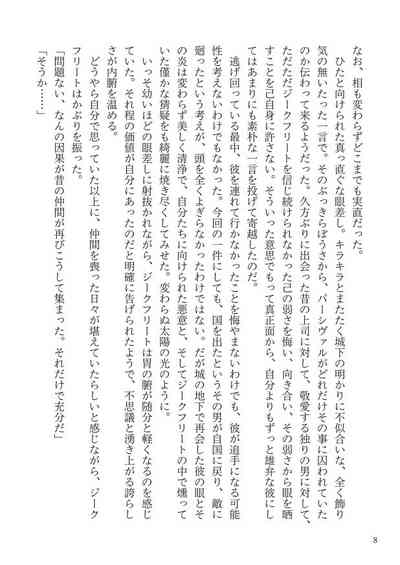 なお、相も変わらずどこまでも実直だった。
　ひたと向けられた真っ直ぐな眼差し。キラキラとまたたく城下の明かりに不似合いな、全く飾り
気の無いたった一言で。そのぶっきらぼうさから、パーシヴァルがどれだけその事に囚われていた
のか伝わって来るようだった。久方ぶりに出会った昔の上司に対して、敬愛する独りの男に対して、
ただただジークフリートを信じ続けられなかった己の弱さを悔い、向き合い、その弱さから眼を晒
すことを己自身に許さない。そういった意思でもって真正面から、自分よりもずっと雄弁な彼にし
てはあまりにも素朴な一言を投げて寄越したのだ。
　逃げ回っている最中、彼を連れて行かなかったことを悔やまないわけでも、彼が追手になる可能
性を考えないわけでもなかった。今回の一件にしても、国を出たというその男が自国に戻り、敵に
廻ったという考えが、頭を全くよぎらなかったわけではない。だが城の地下で再会した彼の眼とそ
の炎は変わらず美しく清浄で、自分たちに向けられた悪意と、そしてジークフリートの中で燻って
いた僅かな猜疑をも綺麗に焼き尽くしてみせた。変わらぬ太陽の光のように。
　いっそ幼いほどの眼差しに射抜かれながら、ジークフリートは胃の腑が随分と軽くなるのを感じ
ていた。それ程の価値が自分にあったのだと明確に告げられたようで、不思議と湧き上がる誇らし
さが内腑を温める。
　どうやら自分で思っていた以上に、仲間を喪った日々が堪えていたらしいと感じながら、ジーク
フリートはかぶりを振った。
「問題ない、なんの因果が昔の仲間が再びこうして集まった。それだけで充分だ」
「そうか……」
8